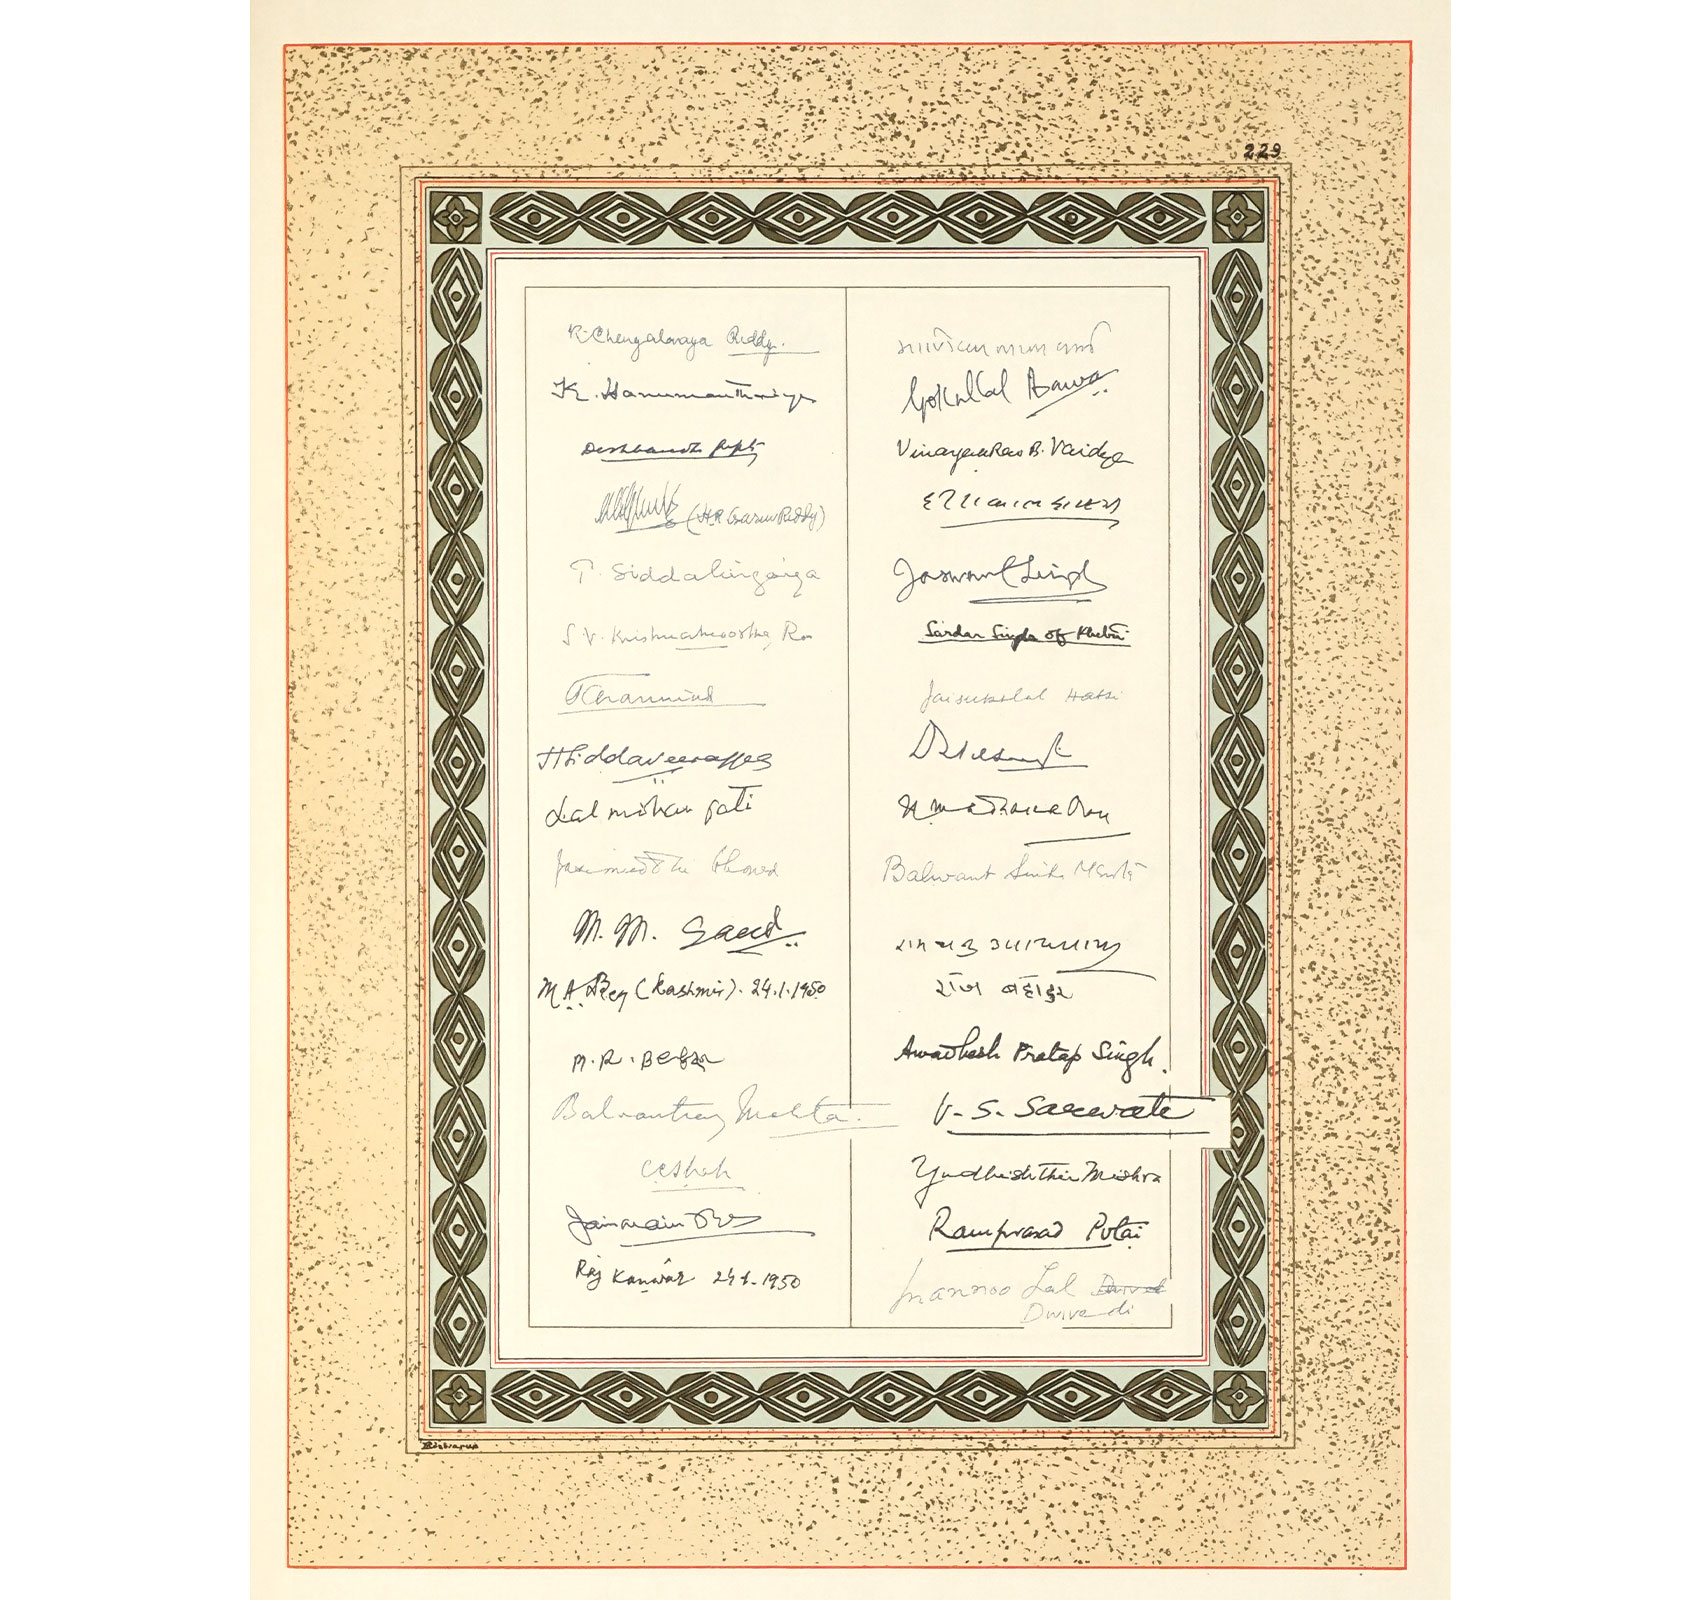 229
K. Chengalaraya Reddy.
K. Hanumanthaiya
Deshbandhu Gupta
(H.R. Guruv Reddy)
T. Siddalingaiya
S. V. Krishnamoorthy Rao
H Siddaveerappa
Lal mohan pati
M. M. Saeed
M A Beg (Kashmir). 24.1.1950
M. R. Berg
Balvantray Mehta.
C C Shah
Jainarain Vyas
Raj Kanwar 24.1.1950
माणिक्य लाल वर्मा
Gokul lal Asawa
Vinayak Rao B. Vaidya
Jaswant Singh
Sardar Singh of Khetri
Jaisukhlal Hathi
Balwant Sinha Mehta
राम चन्द्र उपाध्याय
राज बहादुर
Awadhesh Pratap Singh.
V. S. Sarwate
Yudhishthir Mishra
Ramprasad Potai
Mannoo Lal Dwived
Dwivedi